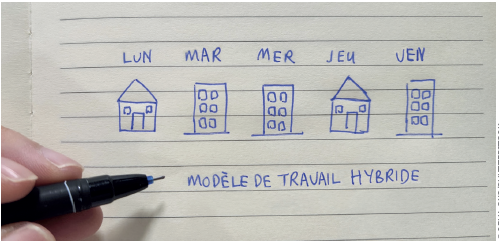 LUN MAR MER JEU VEN
MODÈLE DE TRAVAIL HYBRIDE